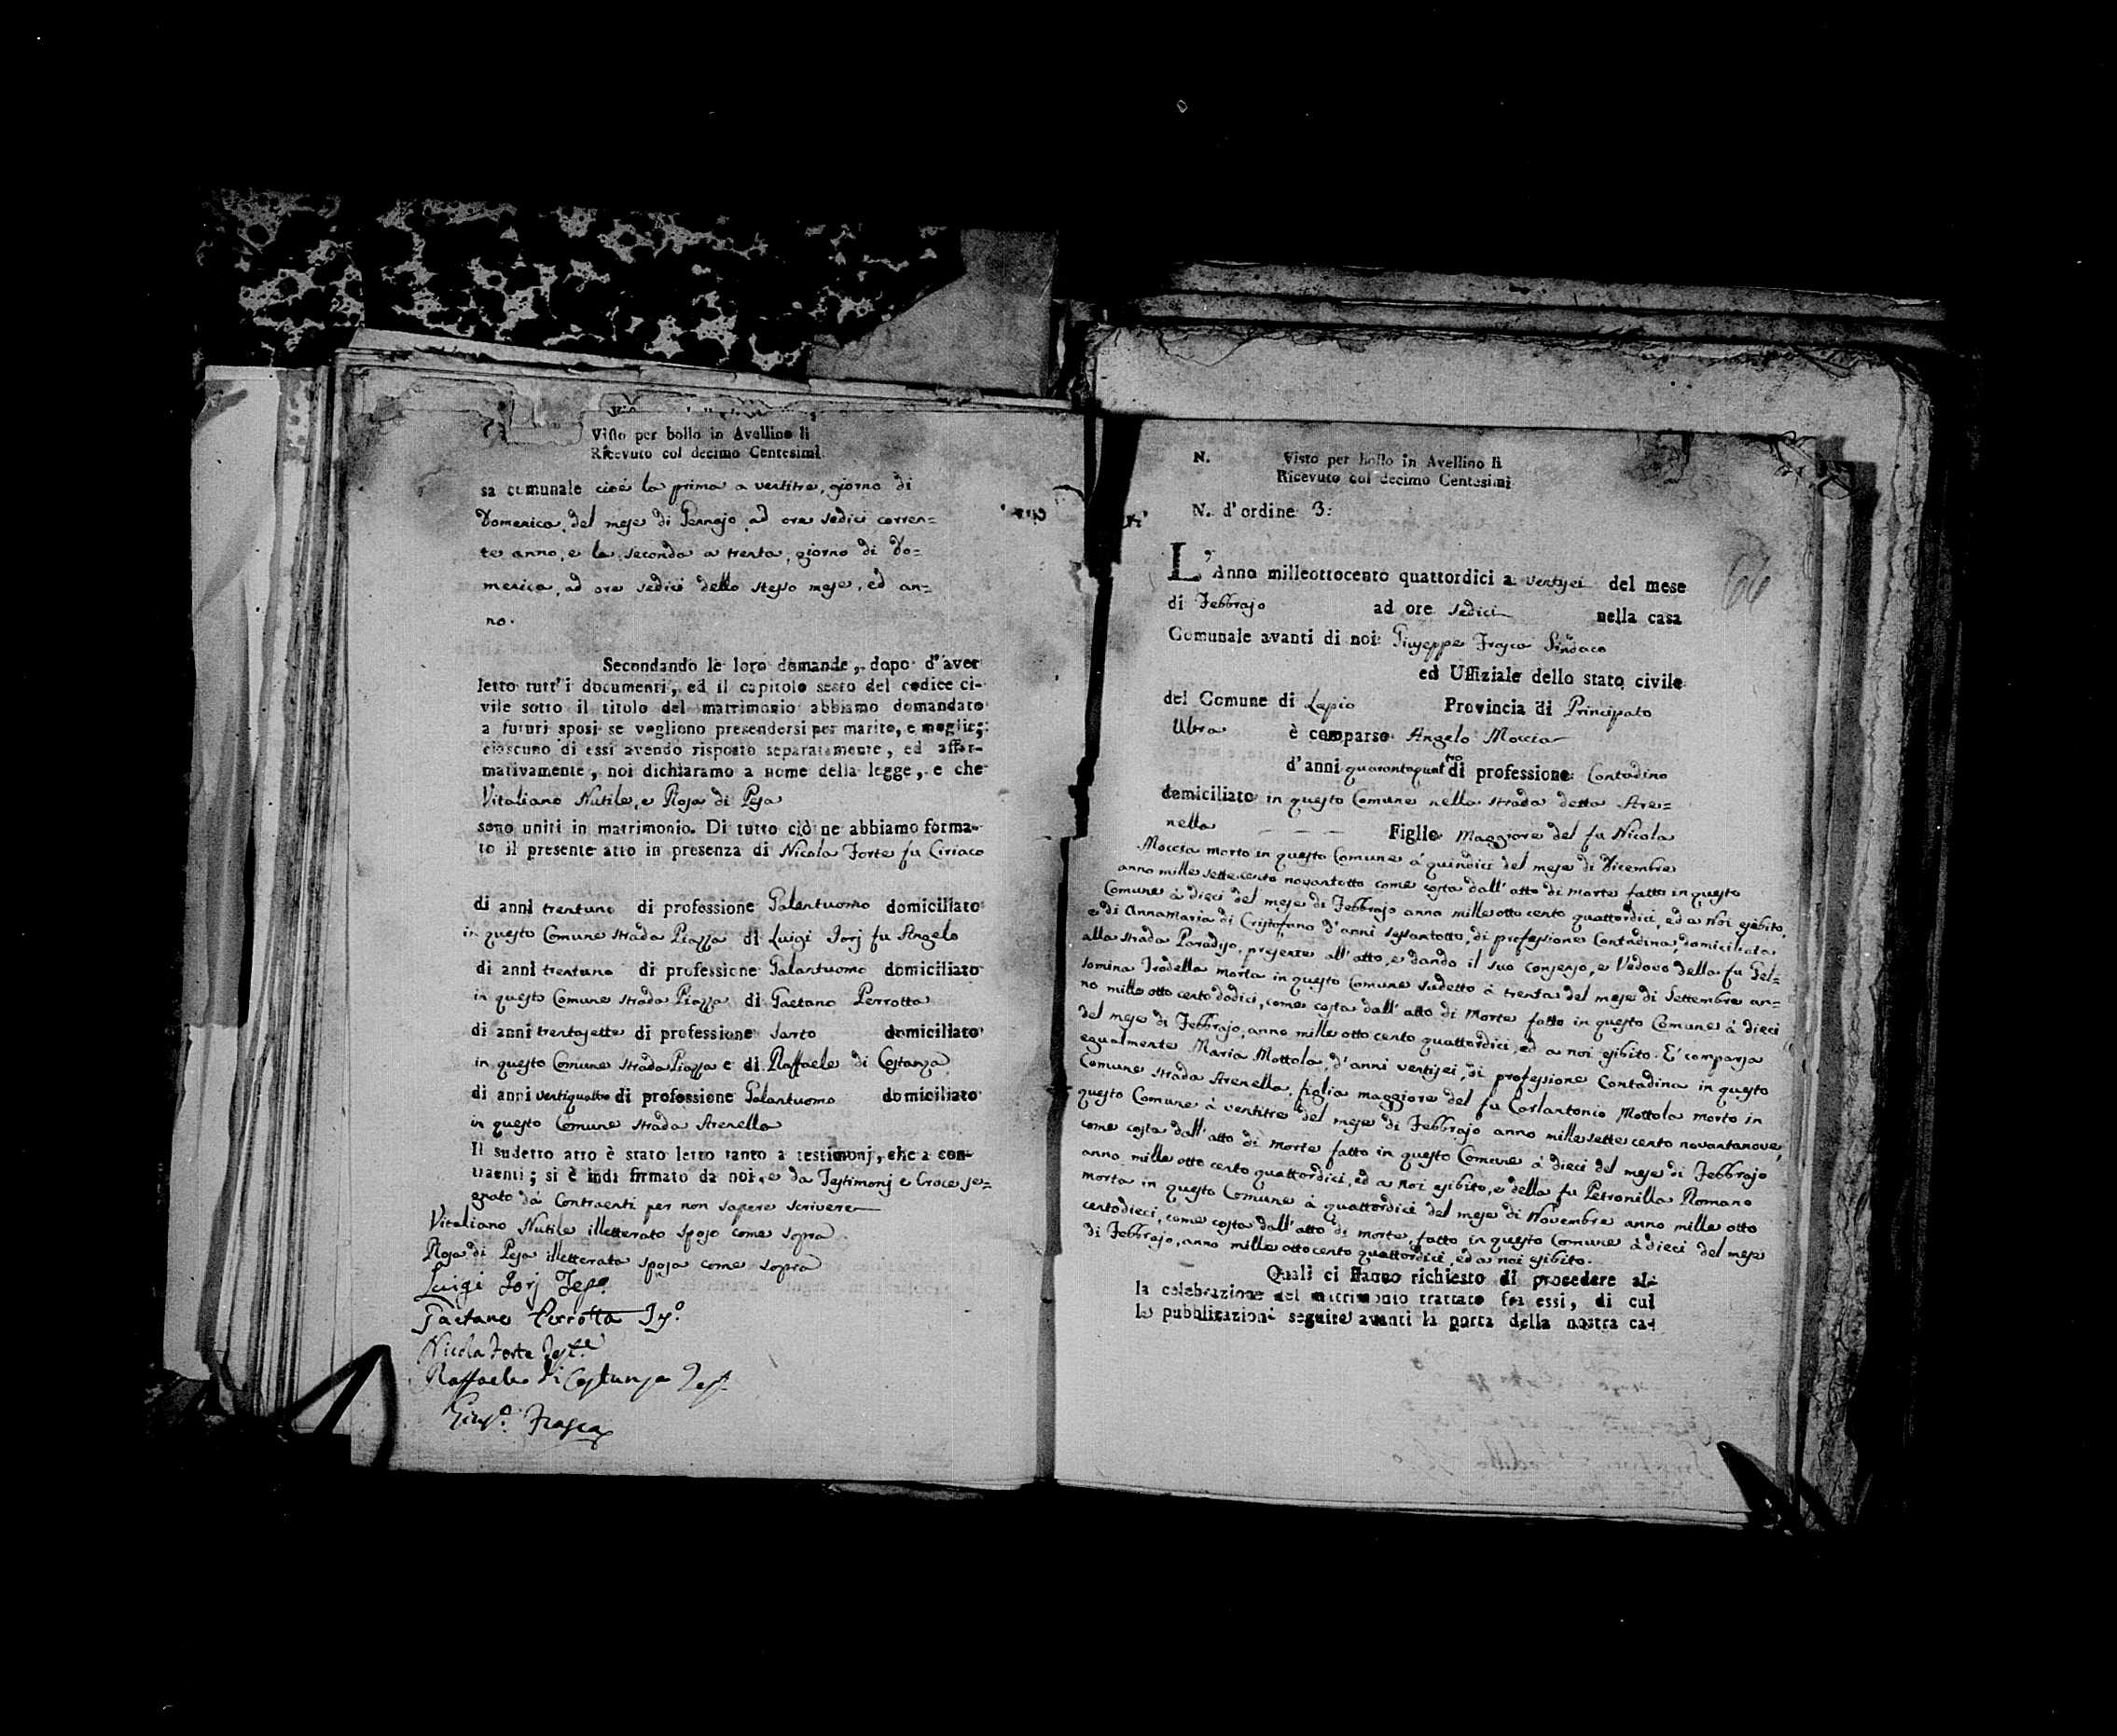 Visto per bollo in Avellino li
Ricevuto col decimo Centesimi.
sa comunale cioè la prima a ventitre, giorno di
Domenica, del mese di Gennajo, ad ore sedici corren=
te anno, e la seconda a trenta, giorno di Do=
menica, ad ore sedici dello stesso mese, ed an=
no.
Secondando le loro domande, dopo d'aver
letto tutt'i documenti, ed il capitolo sesto del codice ci-
vile sotto il titolo del matrimonio abbiamo domandato
a futuri sposi se vogliono presendersi per marito, e moglie;
ciascuno di essi avendo risposto separatamente, ed affer-
mativamente, noi dichiaramo a nome della legge, e che
Vitaliano Nutile, e Rosa di Pesa
sono uniti in matrimonio. Di tutto ciò ne abbiamo forma-
to il presente atto in presenza di Nicola Forte fu Ciriaco
di anni trentuno di professione Galantuomo domiciliato
in questo Comune strada Piazza di Luigi Jorj fu Angelo
di anni trentuno di professione Galantuomo domiciliato
in questo Comune strada Piazza di Gaetano Perrotta
di anni trentasette di professione Sarto domiciliato
in questo Comune strada Piazza e di Raffaele di Costanza
di anni ventiquattro di professione Galantuomo domiciliato
in questo Comune strada Arenella
Il sudetto atto è stato letto tanto a testimonj, che a con-
traenti; si è indi firmato da noi, e da Testimonj e Croce se=
gnato dà Contraenti per non sapere scrivere
Vitaliano Nutile illetterato sposo come sopra.
Rosa di Pesa illetterata sposa come sopra
Luigi Jorj Tes.º
Gaetano Perrotta Ts.º
Nicola Forte Test.e
Raffaele di Costanza Tes.
Gius.e Frasca
N. Visto per bollo in Avellino li
Ricevuto col decimo Centesimi
N. d'ordine 3:
66
L'Anno milleottocento quattordici a ventisei del mese
di Febbrajo ad ore sedici nella casa
Comunale avanti di noi Giuseppe Frasca Sindaco
ed Uffiziale dello stato civile
del Comune di Lapio Provincia di Principato
Ultra è comparso Angelo Moccia
d'anni quarantaquattro di professione Contadino
domiciliato in questo Comune nella strada detta Are=
nella Figlio maggiore del fu Nicola
Moccia morto in questo Comune à quindici del mese di Dicembre
anno mille settecento novantotto come costa dall'atto di morte fatto in questo
Comune à dieci del mese di Febbrajo anno mille otto cento quattordici, ed a noi esibito,
e di Annamaria di Cristofano d'anni sessantotto, di professione Contadina, domiciliata
alla strada Paradiso, presente all'atto, e dando il suo consenso, e Vedovo della fu Gel=
somina Trodella morta in questo Comune sudetto à trenta del mese di Settembre an=
no mille otto cento dodici, come costa dall'atto di Morte fatto in questo Comune à dieci
del mese di Febbrajo, anno mille otto cento quattordici, ed a noi esibito. E' comparsa
egualmente Maria Mottola, d'anni ventisei, di professione Contadina in questo
Comune strada Arenella, figlia maggiore del fu Carlantonio Mottola morto in
questo Comune à ventitre del mese di Febbrajo anno mille sette cento novantanove,
come costa dall'atto di morte fatto in questo Comune à dieci del mese di Febbrajo
anno mille otto cento quattordici, ed a noi esibito, e della fu Petronilla Romano
morta in questo Comune à quattordici del mese di Novembre anno mille otto
centodieci, come costa dall'atto di morte, fatto in questo Comune à dieci del mese
di Febbrajo, anno mille ottocento quattordici, ed a noi esibito.
Quali ci hanno richiesto di procedere al-
la celebrazione del matrimonio trattato fra essi, di cui
le pubblicazioni seguite avanti la porta della nostra ca-